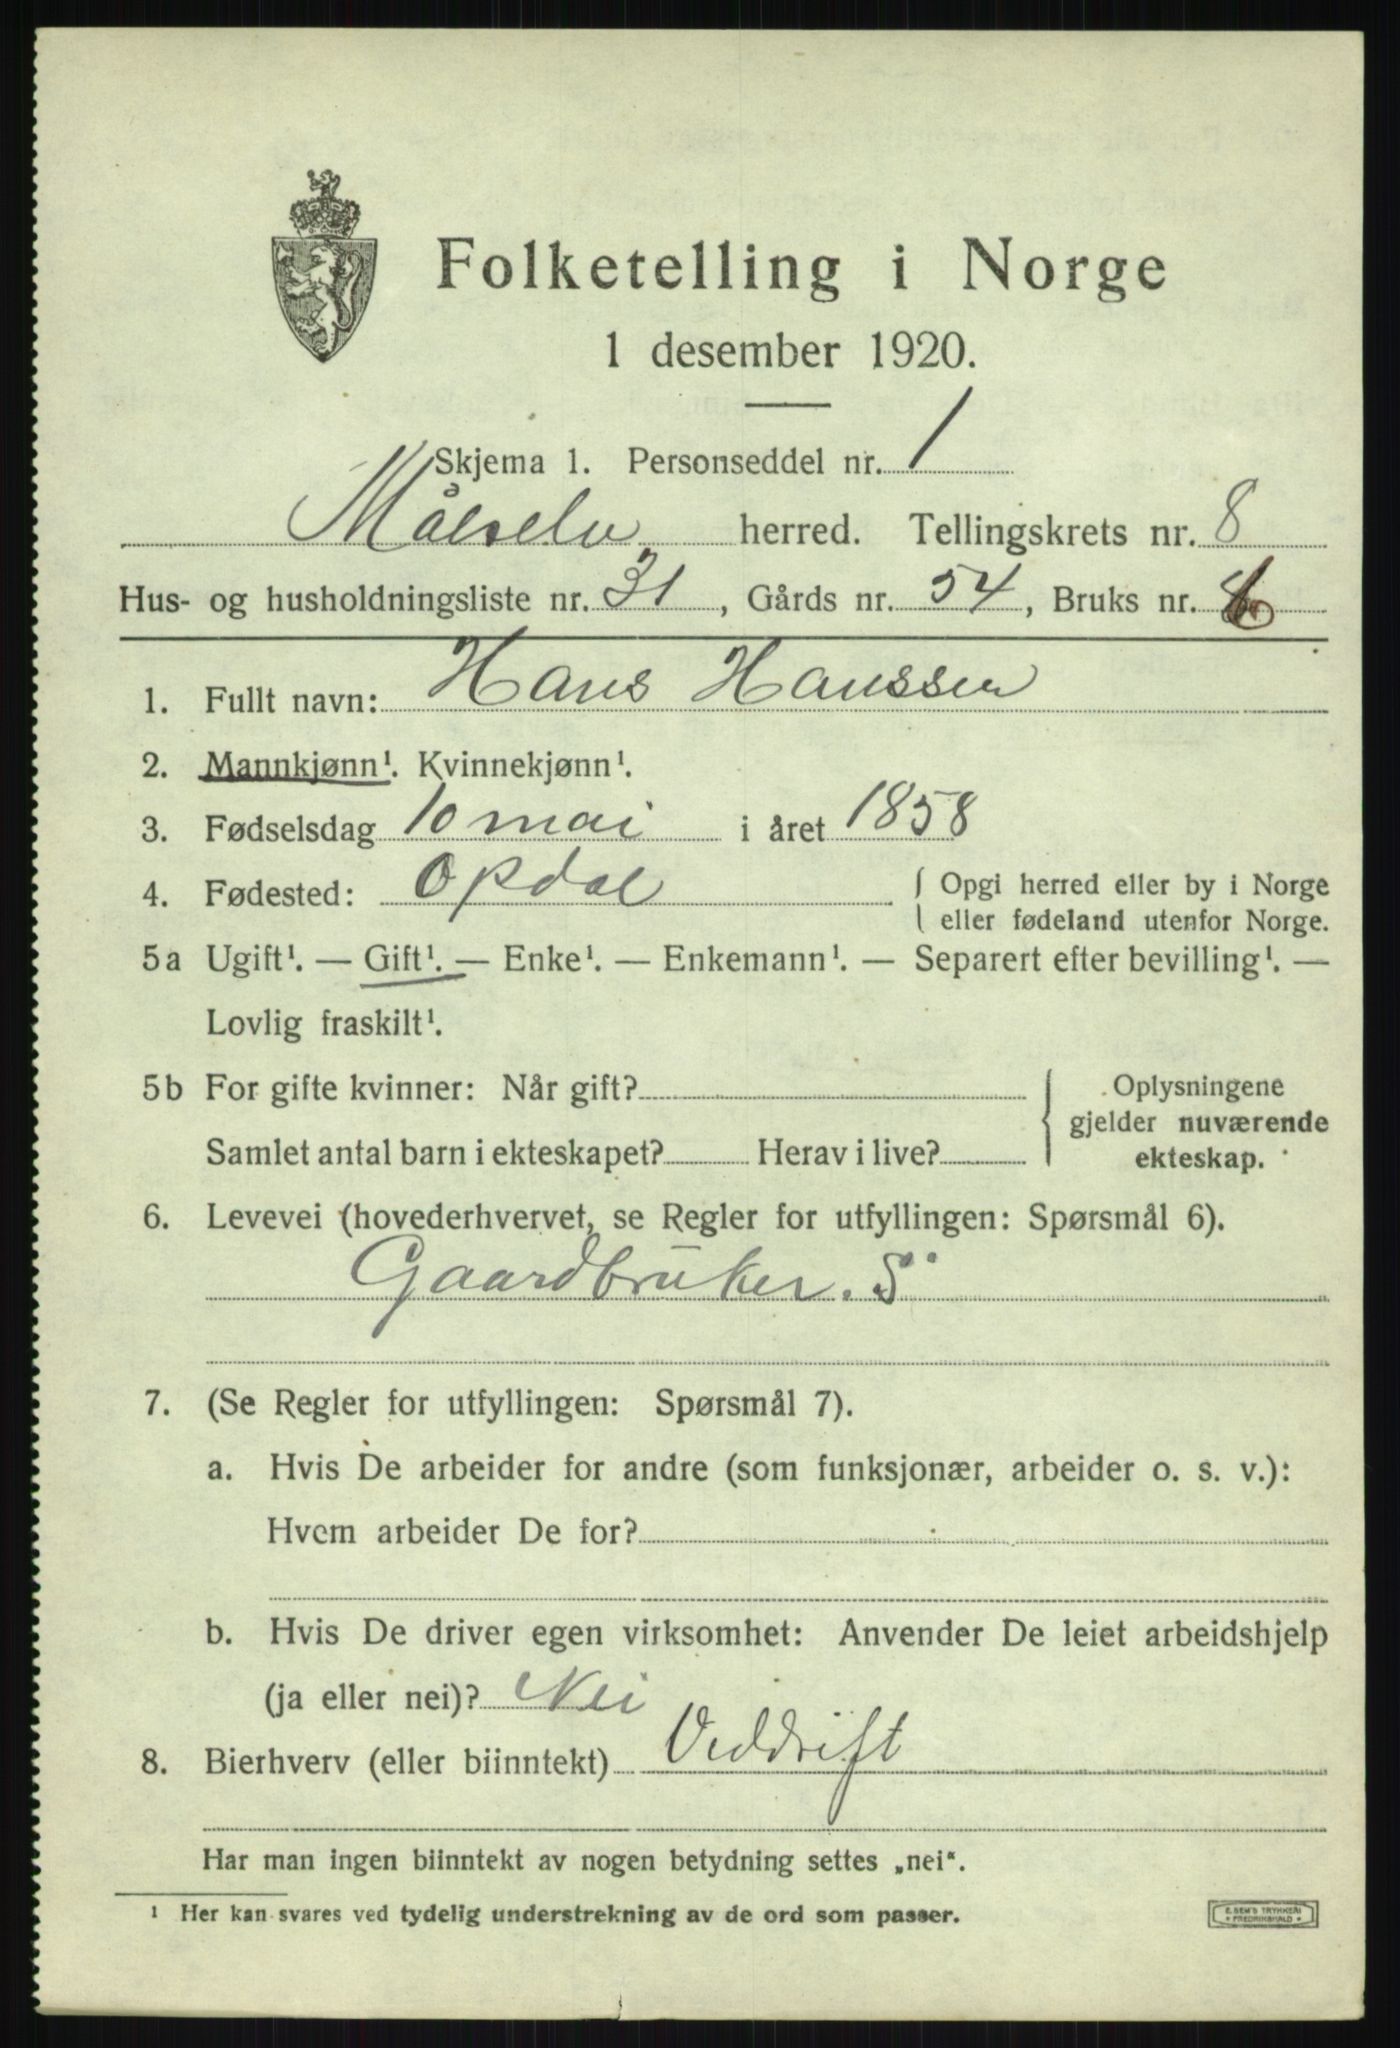 Folketelling i Norge
1 desember 1920.
Skjema 1. Personseddel nr. 1
Målselv herred. Tellingskrets nr. 8
Hus- og husholdningsliste nr. 31, Gårds nr. 54, Bruks nr.
1. Fullt navn: Hans Hanssen
2. Mannkjønn¹. Kvinnekjønn¹.
3. Fødselsdag 10 mai i året 1858
4. Fødested: Opdal { Opgi herred eller by i Norge
eller fødeland utenfor Norge.
5a Ugift¹. — Gift¹. — Enke¹. — Enkemann¹. — Separert efter bevilling¹. —
Lovlig fraskilt¹.
5b For gifte kvinner: Når gift? { Oplysningene
gjelder nuværende
Samlet antal barn i ekteskapet? Herav i live? ekteskap.
6. Levevei (hovederhvervet, se Regler for utfyllingen: Spørsmål 6).
Gaardbruker. S
7. (Se Regler for utfyllingen: Spørsmål 7).
a. Hvis De arbeider for andre (som funksjonær, arbeider o. s. v.):
Hvem arbeider De for?
b. Hvis De driver egen virksomhet: Anvender De leiet arbeidshjelp
(ja eller nei)? Nei
8. Bierhverv (eller biinntekt) Veddrift
Har man ingen biinntekt av nogen betydning settes „nei“.
¹ Her kan svares ved tydelig understrekning av de ord som passer.
E. SEM'S TRYKKERI
FREDRIKSHALD